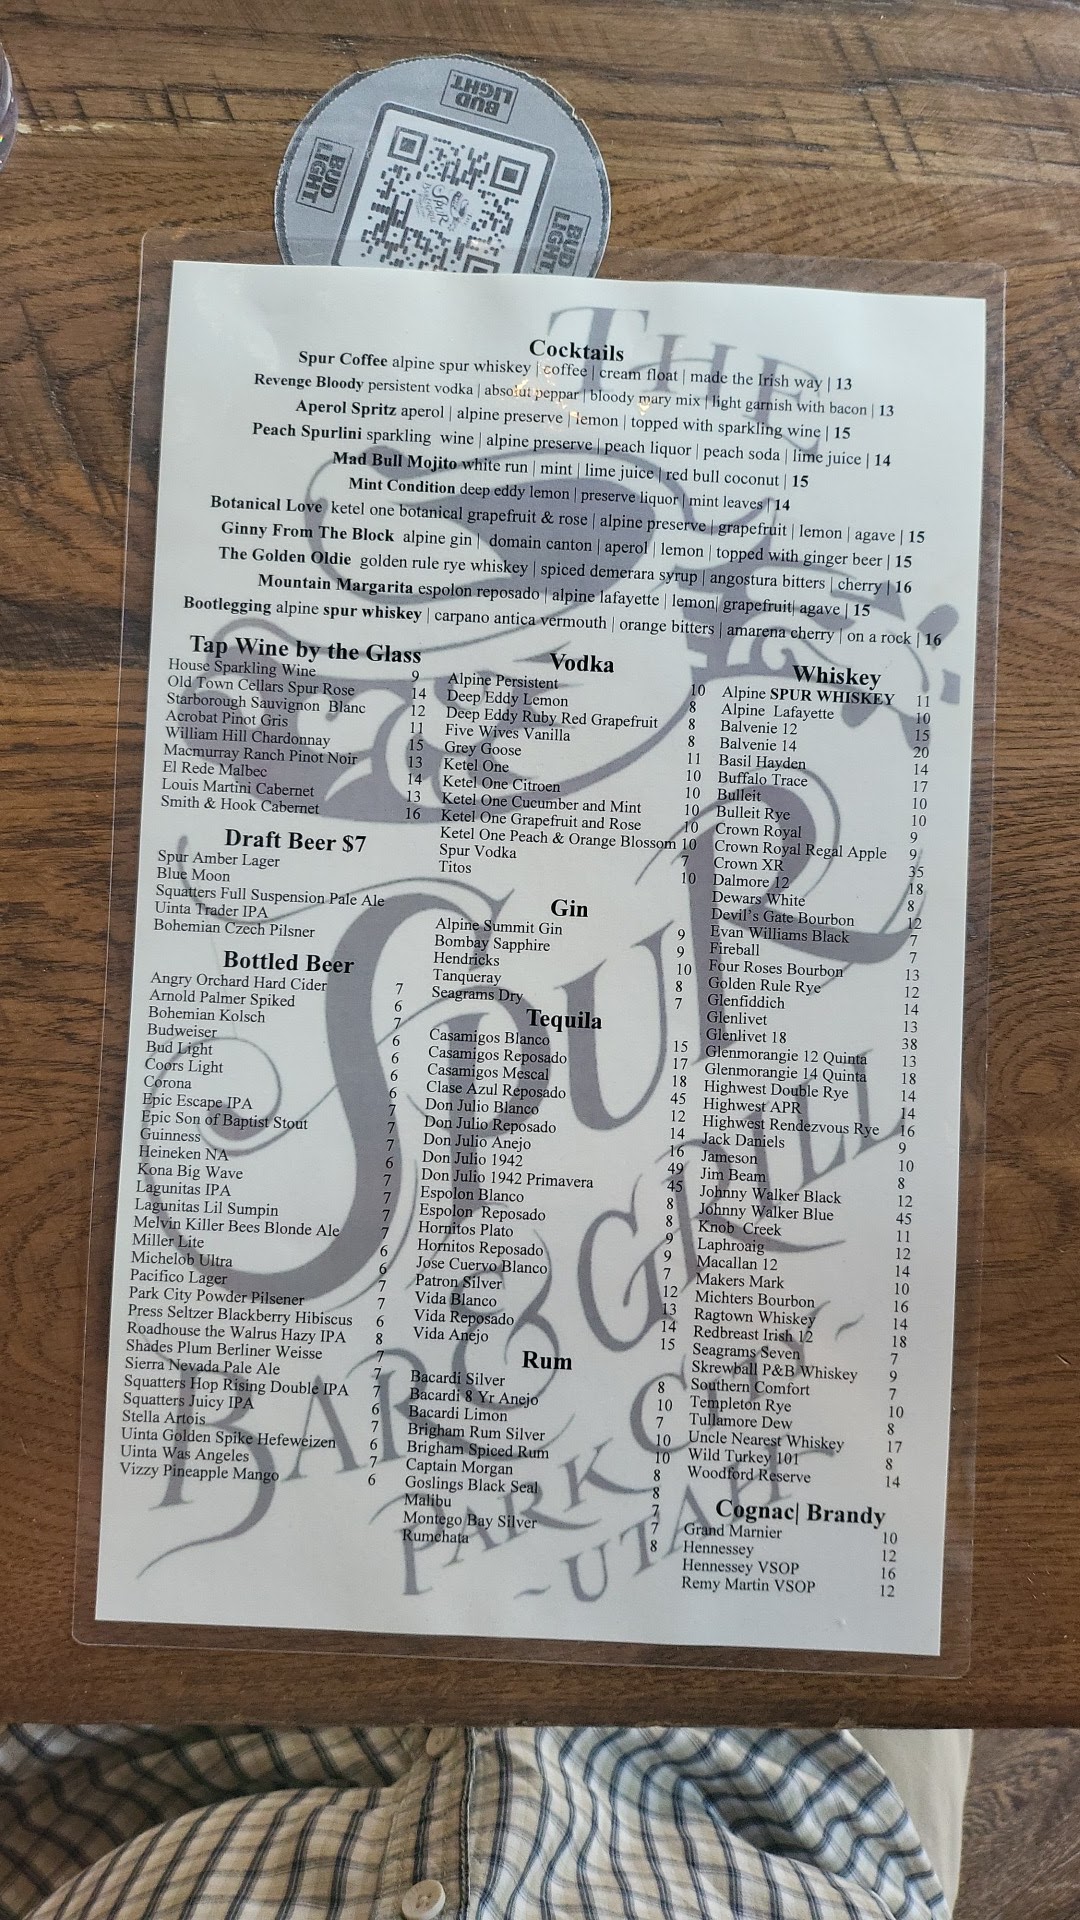 BUD LIGHT
BUD LIGHT
BUD LIGHT
SPUR
THE
SPUR
BAR & GRILL
PARK CITY
~UTAH~
Cocktails
Spur Coffee alpine spur whiskey | coffee | cream float | made the Irish way | 13
Revenge Bloody persistent vodka | absolut peppar | bloody mary mix | light garnish with bacon | 13
Aperol Spritz aperol | alpine preserve | lemon | topped with sparkling wine | 15
Peach Spurlini sparkling wine | alpine preserve | peach liquor | peach soda | lime juice | 14
Mad Bull Mojito white run | mint | lime juice | red bull coconut | 15
Mint Condition deep eddy lemon | preserve liquor | mint leaves | 14
Botanical Love ketel one botanical grapefruit & rose | alpine preserve | grapefruit | lemon | agave | 15
Ginny From The Block alpine gin | domain canton | aperol | lemon | topped with ginger beer | 15
The Golden Oldie golden rule rye whiskey | spiced demerara syrup | angostura bitters | cherry | 16
Mountain Margarita espolon reposado | alpine lafayette | lemon| grapefruit| agave | 15
Bootlegging alpine spur whiskey | carpano antica vermouth | orange bitters | amarena cherry | on a rock | 16
Tap Wine by the Glass
House Sparkling Wine 9
Old Town Cellars Spur Rose 14
Starborough Sauvignon Blanc 12
Acrobat Pinot Gris 11
William Hill Chardonnay 15
Macmurray Ranch Pinot Noir 13
El Rede Malbec 14
Louis Martini Cabernet 13
Smith & Hook Cabernet 16
Draft Beer $7
Spur Amber Lager
Blue Moon
Squatters Full Suspension Pale Ale
Uinta Trader IPA
Bohemian Czech Pilsner
Bottled Beer
Angry Orchard Hard Cider 7
Arnold Palmer Spiked 6
Bohemian Kolsch 7
Budweiser 6
Bud Light 6
Coors Light 6
Corona 6
Epic Escape IPA 7
Epic Son of Baptist Stout 7
Guinness 7
Heineken NA 6
Kona Big Wave 7
Lagunitas IPA 7
Lagunitas Lil Sumpin 7
Melvin Killer Bees Blonde Ale 7
Miller Lite 6
Michelob Ultra 6
Pacifico Lager 7
Park City Powder Pilsener 7
Press Seltzer Blackberry Hibiscus 6
Roadhouse the Walrus Hazy IPA 8
Shades Plum Berliner Weisse 7
Sierra Nevada Pale Ale 7
Squatters Hop Rising Double IPA 7
Squatters Juicy IPA 6
Stella Artois 7
Uinta Golden Spike Hefeweizen 6
Uinta Was Angeles 7
Vizzy Pineapple Mango 6
Vodka
Alpine Persistent 10
Deep Eddy Lemon 8
Deep Eddy Ruby Red Grapefruit 8
Five Wives Vanilla 8
Grey Goose 11
Ketel One 10
Ketel One Citroen 10
Ketel One Cucumber and Mint 10
Ketel One Grapefruit and Rose 10
Ketel One Peach & Orange Blossom 10
Spur Vodka 7
Titos 10
Gin
Alpine Summit Gin 9
Bombay Sapphire 9
Hendricks 10
Tanqueray 8
Seagrams Dry 7
Tequila
Casamigos Blanco 15
Casamigos Reposado 17
Casamigos Mescal 18
Clase Azul Reposado 45
Don Julio Blanco 12
Don Julio Reposado 14
Don Julio Anejo 16
Don Julio 1942 49
Don Julio 1942 Primavera 45
Espolon Blanco 8
Espolon Reposado 8
Hornitos Plato 9
Hornitos Reposado 9
Jose Cuervo Blanco 7
Patron Silver 12
Vida Blanco 13
Vida Reposado 14
Vida Anejo 15
Rum
Bacardi Silver 8
Bacardi 8 Yr Anejo 10
Bacardi Limon 7
Brigham Rum Silver 10
Brigham Spiced Rum 10
Captain Morgan 8
Goslings Black Seal 8
Malibu 7
Montego Bay Silver 7
Rumchata 8
Whiskey
Alpine SPUR WHISKEY 11
Alpine Lafayette 10
Balvenie 12 15
Balvenie 14 20
Basil Hayden 14
Buffalo Trace 17
Bulleit 10
Bulleit Rye 10
Crown Royal 9
Crown Royal Regal Apple 9
Crown XR 35
Dalmore 12 18
Dewars White 8
Devil's Gate Bourbon 12
Evan Williams Black 7
Fireball 7
Four Roses Bourbon 13
Golden Rule Rye 12
Glenfiddich 14
Glenlivet 13
Glenlivet 18 38
Glenmorangie 12 Quinta 13
Glenmorangie 14 Quinta 18
Highwest Double Rye 14
Highwest APR 14
Highwest Rendezvous Rye 16
Jack Daniels 9
Jameson 10
Jim Beam 8
Johnny Walker Black 12
Johnny Walker Blue 45
Knob Creek 11
Laphroaig 12
Macallan 12 14
Makers Mark 10
Michters Bourbon 16
Ragtown Whiskey 14
Redbreast Irish 12 18
Seagrams Seven 7
Skrewball P&B Whiskey 9
Southern Comfort 7
Templeton Rye 10
Tullamore Dew 8
Uncle Nearest Whiskey 17
Wild Turkey 101 8
Woodford Reserve 14
Cognac| Brandy
Grand Marnier 10
Hennessey 12
Hennessey VSOP 16
Remy Martin VSOP 12